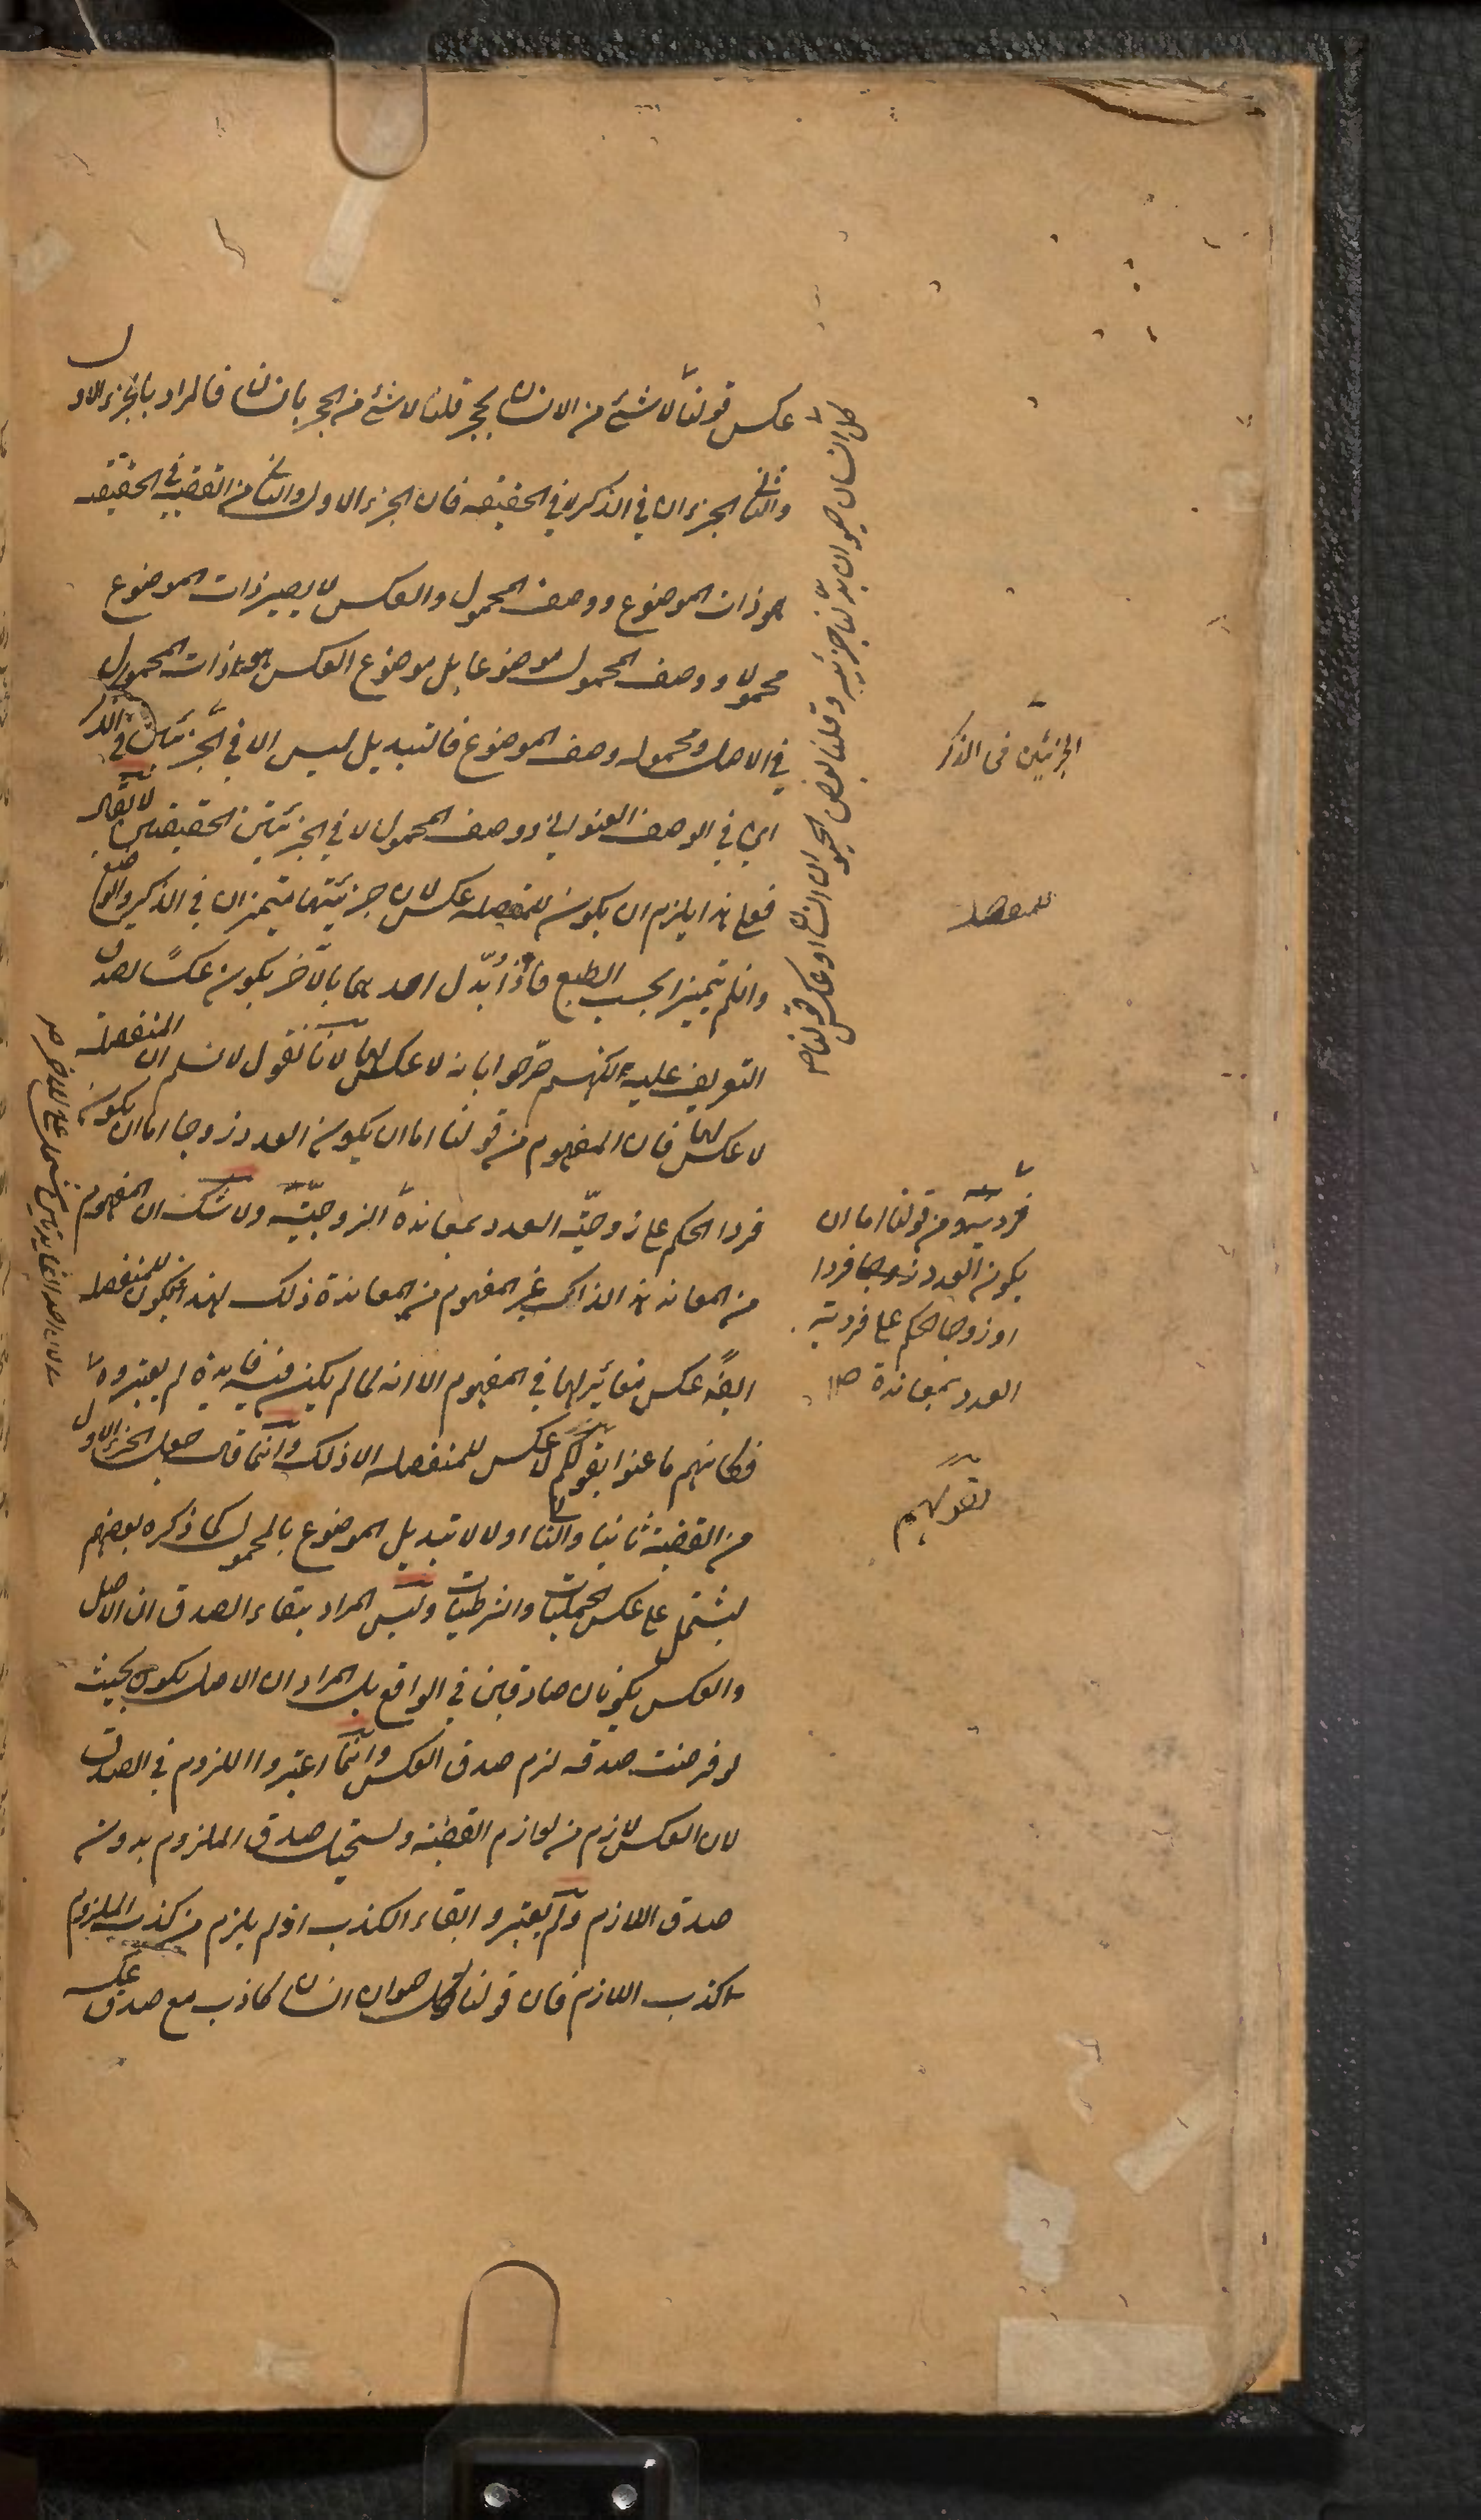 عكس قولنا لا شئ من الانسان بحجر قلنا لا شئ من الحجر بانسان فالمراد بالجزء الاول
والثانى الجزءان في الذكر لا في الحقيقه فان الجزء الاول والثانى من القضية في الحقيقه
هو ذات الموضوع ووصف المحمول والعكس لا يصير ذات الموضوع
محمولا ووصف المحمول موضوعا بل موضوع العكس هو ذات المحمول
في الاصل ومحموله وصف الموضوع فالتبديل ليس الا في الجزئين في الذكر
اي في الوصف العنواني ووصف المحمول لا في الجزئين الحقيقيين لا يقال
فعلى هذا يلزم ان يكون للمنفصله عكس لان جزئيتها متميزان في الذكر والوضع
وان لم يتميزا بحسب الطبع فاذا بدّل احدهما بالآخر يكون عكسًا لصدق
التعريف عليه لكنهم صرّحوا بانه لا عكس لها لانا نقول لا نسلم ان المنفصلة
لا عكس لها فان المفهوم من قولنا اما ان يكون العدد زوجا اما ان يكون
فردا الحكم على زوجيّة العدد بمعاندة الزوجيّة ولا شك ان المفهوم
من معاندة هذا لذاك غير المفهوم من معاندة ذلك لهذا فيكون للمنفصله
ايضًا عكس مغائر لها في المفهوم الا انه لما لم يكن فيه فايدة لم يعتبروه
فكانهم ما عنوا بقولكم لا عكس للمنفصله الا ذلك وانّما قال جعل الجزء الاول
من القضية ثانيا والثانى اولا لا تبديل الموضوع بالمحمول كما ذكره بعضهم
ليشتمل على عكس الحمليات والشرطيات وليس المراد ببقاء الصدق ان الاصل
والعكس يكونان صادقين في الواقع بل المراد ان الاصل يكون بحيث
لو فرضت صدقه لزم صدق العكس وانّما اعتبروا اللزوم في الصدق
لان العكس لازم من لوازم القضية ويستحيل صدق الملزوم بدون
صدق اللازم ولم يعتبروا بقاء الكذب اذ لم يلزم من كذب الملزوم
كذب اللازم فان قولنا كل حيوان انسان كاذب مع صدق عكسه
كل انسان حيوان بدّلنا جزئيه وقلنا بعض الحيوان انسان او عكس قولنا صح
الجزئين فى الذكر
للمنفصله
فرديته من قولنا اما ان
يكون العدد زوجا فردا
او زوجا الحكم على فردية
العدد بمعاندة صح
بقولهم